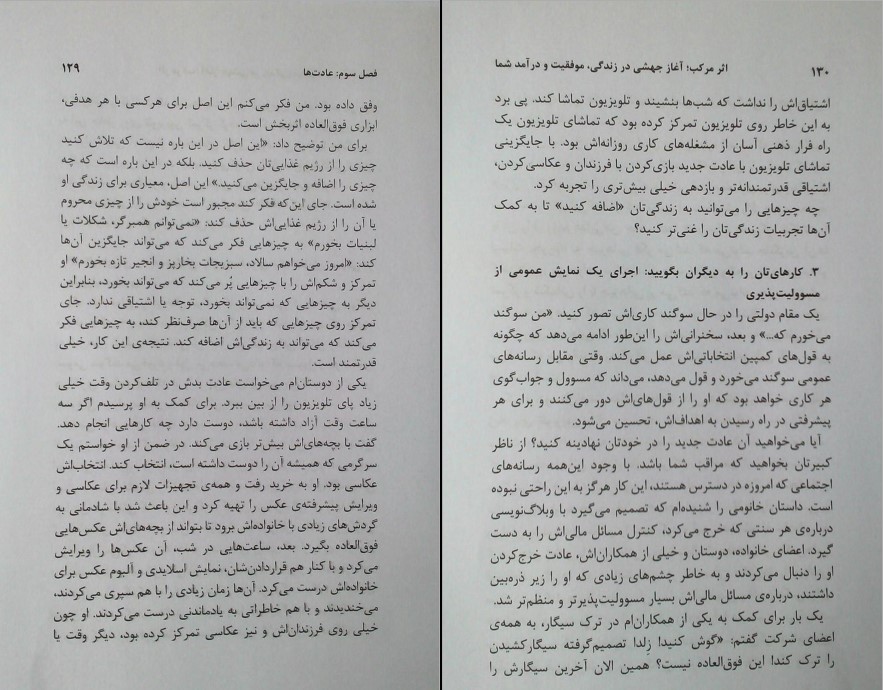 فصل سوم: عادت‌ها ۱۲۹
وفق داده بود. من فکر می‌کنم این اصل برای هرکسی با هر هدفی،
ابزاری فوق‌العاده اثربخش است.
برای من توضیح داد: «این اصل در این باره نیست که تلاش کنید
چیزی را از رژیم غذایی‌تان حذف کنید. بلکه در این باره است که چه
چیزی را اضافه و جایگزین می‌کنید.» این اصل، معیاری برای زندگی او
شده است. جای این‌که فکر کند مجبور است خودش را از چیزی محروم
یا آن را از رژیم غذایی‌اش حذف کند: «نمی‌توانم همبرگر، شکلات یا
لبنیات بخورم» به چیزهایی فکر می‌کند که می‌تواند جایگزین آن‌ها
کند: «امروز می‌خواهم سالاد، سبزیجات بخارپز و انجیر تازه بخورم» او
تمرکز و شکم‌اش را با چیزهایی پُر می‌کند که می‌تواند بخورد، بنابراین
دیگر به چیزهایی که نمی‌تواند بخورد، توجه یا اشتیاقی ندارد. جای
تمرکز روی چیزهایی که باید از آن‌ها صرف‌نظر کند، به چیزهایی فکر
می‌کند که می‌تواند به زندگی‌اش اضافه کند. نتیجه‌ی این کار، خیلی
قدرتمند است.
یکی از دوستان‌ام می‌خواست عادت بدش در تلف‌کردن وقت خیلی
زیاد پای تلویزیون را از بین ببرد. برای کمک به او پرسیدم اگر سه
ساعت وقت آزاد داشته باشد، دوست دارد چه کارهایی انجام دهد.
گفت با بچه‌های‌اش بیش‌تر بازی می‌کند. در ضمن از او خواستم یک
سرگرمی که همیشه آن را دوست داشته است، انتخاب کند. انتخاب‌اش
عکاسی بود. او به خرید رفت و همه‌ی تجهیزات لازم برای عکاسی و
ویرایش پیشرفته‌ی عکس را تهیه کرد و این باعث شد با شادمانی به
گردش‌های زیادی با خانواده‌اش برود تا بتواند از بچه‌های‌اش عکس‌هایی
فوق‌العاده بگیرد. بعد، ساعت‌هایی در شب، آن عکس‌ها را ویرایش
می‌کرد و با کنار هم قراردادن‌شان، نمایش اسلایدی و آلبوم عکس برای
خانواده‌اش درست می‌کرد. آن‌ها زمان زیادی را با هم سپری می‌کردند،
می‌خندیدند و با هم خاطراتی به یادماندنی درست می‌کردند. او چون
خیلی روی فرزندان‌اش و نیز عکاسی تمرکز کرده بود، دیگر وقت یا
۱۳۰ اثر مرکب؛ آغاز جهشی در زندگی، موفقیت و درآمد شما
اشتیاق‌اش را نداشت که شب‌ها بنشیند و تلویزیون تماشا کند. پی برد
به این خاطر روی تلویزیون تمرکز کرده بود که تماشای تلویزیون یک
راه فرار ذهنی آسان از مشغله‌های کاری روزانه‌اش بود. با جایگزینی
تماشای تلویزیون با عادت جدید بازی‌کردن با فرزندان و عکاسی‌کردن،
اشتیاقی قدرتمندانه‌تر و بازدهی خیلی بیش‌تری را تجربه کرد.
چه چیزهایی را می‌توانید به زندگی‌تان «اضافه کنید» تا به کمک
آن‌ها تجربیات زندگی‌تان را غنی‌تر کنید؟
۳. کارهای‌تان را به دیگران بگویید: اجرای یک نمایش عمومی از
مسوولیت‌پذیری
یک مقام دولتی را در حال سوگند کاری‌اش تصور کنید. «من سوگند
می‌خورم که...» و بعد، سخنرانی‌اش را این‌طور ادامه می‌دهد که چگونه
به قول‌های کمپین انتخاباتی‌اش عمل می‌کند. وقتی مقابل رسانه‌های
عمومی سوگند می‌خورد و قول می‌دهد، می‌داند که مسوول و جواب‌گوی
هر کاری خواهد بود که او را از قول‌های‌اش دور می‌کنند و برای هر
پیشرفتی در راه رسیدن به اهداف‌اش، تحسین می‌شود.
آیا می‌خواهید آن عادت جدید را در خودتان نهادینه کنید؟ از ناظر
کبیرتان بخواهید که مراقب شما باشد. با وجود این‌همه رسانه‌های
اجتماعی که امروزه در دسترس هستند، این کار هرگز به این راحتی نبوده
است. داستان خانومی را شنیده‌ام که تصمیم می‌گیرد با وبلاگ‌نویسی
درباره‌ی هر سنتی که خرج می‌کرد، کنترل مسائل مالی‌اش را به دست
گیرد. اعضای خانواده، دوستان و خیلی از همکاران‌اش، عادت خرج‌کردن
او را دنبال می‌کردند و به خاطر چشم‌های زیادی که او را زیر ذره‌بین
داشتند، درباره‌ی مسائل مالی‌اش بسیار مسوولیت‌پذیرتر و منظم‌تر شد.
یک بار برای کمک به یکی از همکاران‌ام در ترک سیگار، به همه‌ی
اعضای شرکت گفتم: «گوش کنید! زِلدا تصمیم‌گرفته سیگارکشیدن
را ترک کند! این فوق‌العاده نیست؟ همین الان آخرین سیگارش را